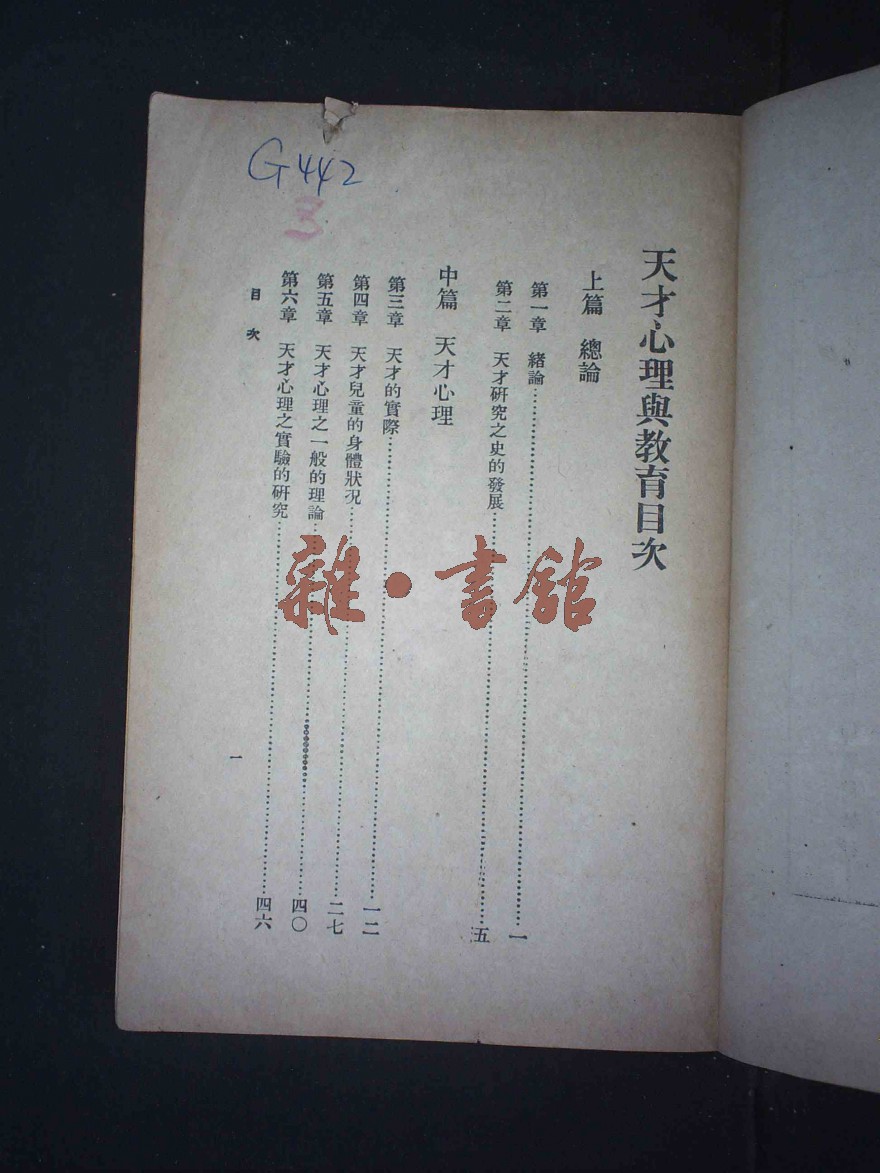 G442
3
天才心理與教育目次
上篇 總論
第一章 緒論…………一
第二章 天才研究之史的發展…………五
中篇 天才心理
第三章 天才的實際…………一二
第四章 天才兒童的身體狀況…………二七
第五章 天才心理之一般的理論…………四〇
第六章 天才心理之實驗的研究…………四六
目次
一
雜·書館